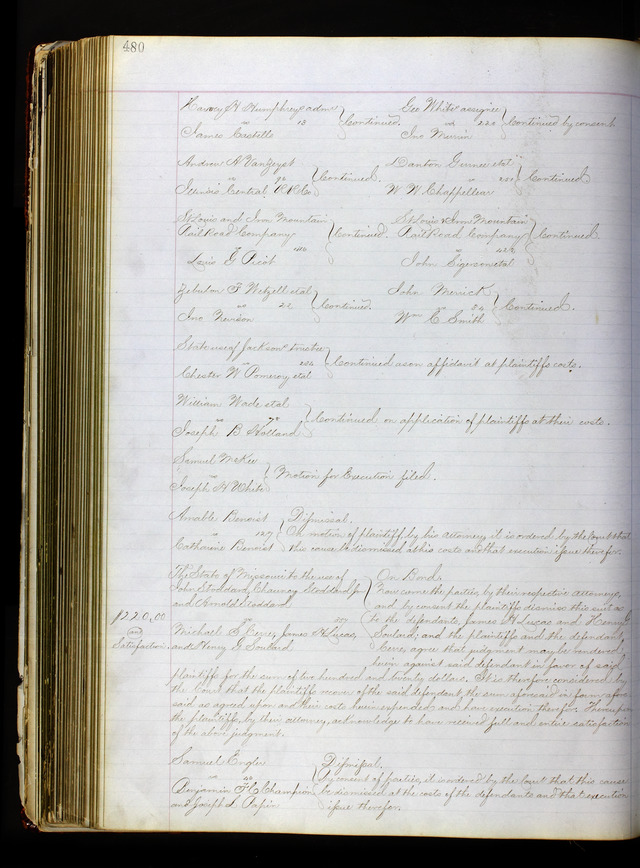 480
Harvey H Humphreys admr
vs 13 Continued.
James Castello
Geo White assignee
vs 220 Continued by consent
Jno
Andrew A
vs 92 Continued.
Illinois Central R R Co
Danton et al
vs Continued
W W Chappellear
St Louis and Iron Mountain
Rail Road Company
vs Continued.
Louis G Picot
St Louis & Iron Mountain
Rail Road Company
vs Continued.
John et al
Zebulon F Wetzell et al
vs 22 Continued.
Jno
John Merrick
vs Continued.
Wm C Smith
State use of Jackson trustee
vs Continued as on affidavit at plaintiffs costs.
Chester W Pomeroy et al
William Wade et al
vs Continued on application of plaintiffs at their costs.
Joseph B Holland
Samuel McKee
vs Motion for Execution filed.
Joseph H White
Amable Benoist
vs 127
Catharine Benoist
Dismissal.
On motion of plaintiff by his attorney, it is ordered by the Court that
this cause be dismissed at his costs and that execution issue therefor.
The State of Missouri to the use of
John Stoddard, Chauncy Stoddard Jr
and Ronald Stoddard
vs
Michael S James H Lucas,
and Henry G Soulard
$220,00
and
Satisfaction
On Bond.
Now come the parties, by their respective attorneys,
and by consent the plaintiffs dismiss this suit as
to the defendants, James H Lucas and Henry G
Soulard; and the plaintiffs and the defendant,
agree that judgment may be rendered
herein against said defendant in favor of said
plaintiffs for the sum of two hundred and twenty dollars. It is therefore considered by
the Court that the plaintiffs recover of the said defendant the sum aforesaid in form afore-
said as agreed upon and their costs herein expended and have execution therefor. Thereupon
the plaintiffs, by their attorney, acknowledge to have received full and entire satisfaction
of the above judgment.
Samuel Engler
vs
Benjamin F Champion
and Joseph L Papin
Dismissal.
By consent of parties, it is ordered by the Court that this cause
be dismissed at the costs of the defendants and that execution
issue therefor.